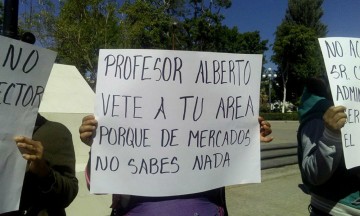 NO
ECTOR
PROFESOR ALBERTO
VETE A TU AREA
PORQUE DE MERCADOS
NO SABES NADA
NO
SR.
ADMIN
EL